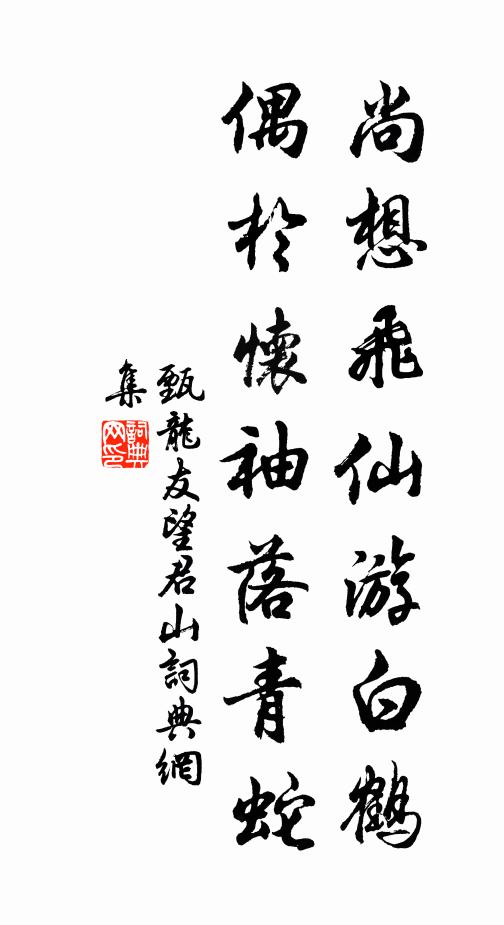 尚想飛仙游白鶴
偶於懷袖落青蛇
甄龍友望君山詞典網
集
詞典網印